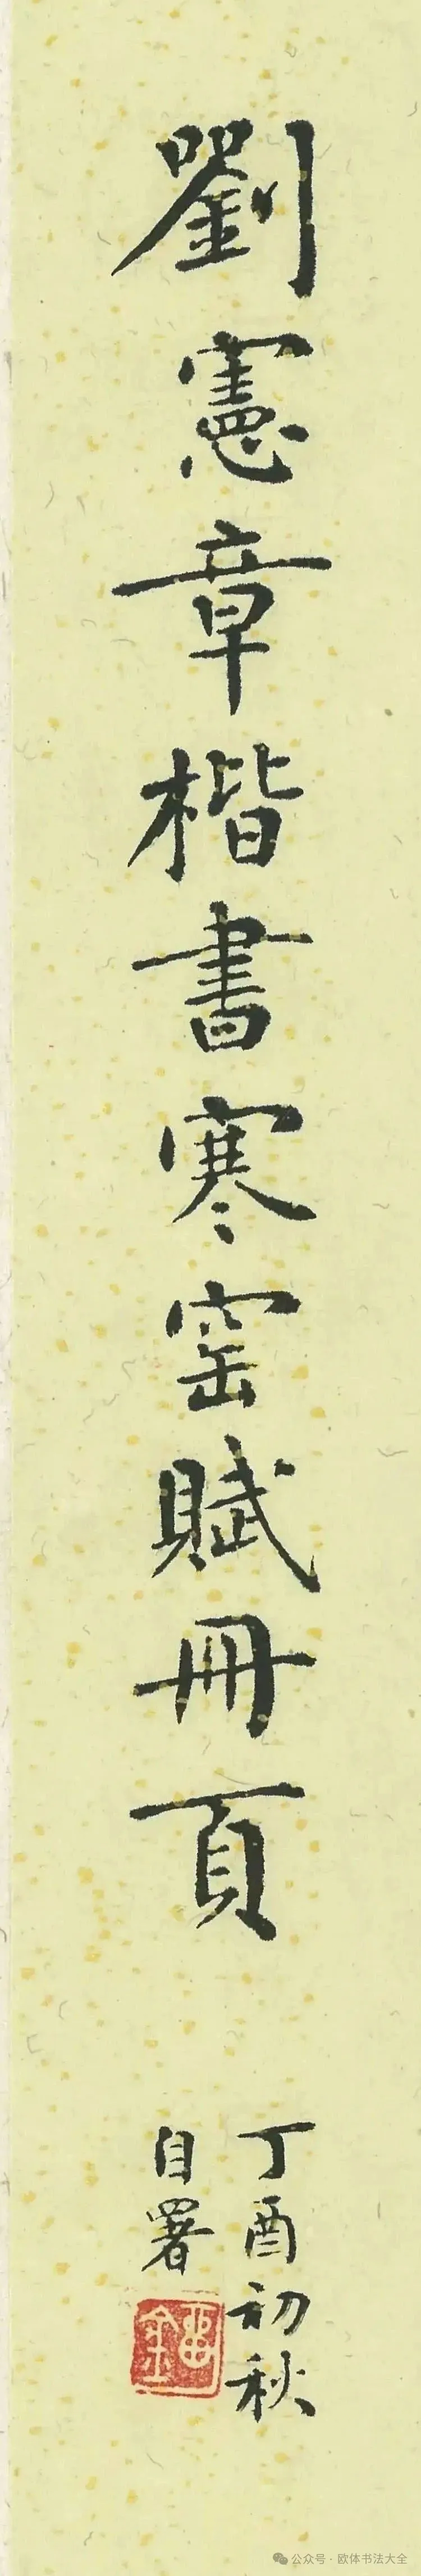 劉憲章楷書寒窰賦冊頁
丁酉初秋
自署
公众号·欧体书法大全